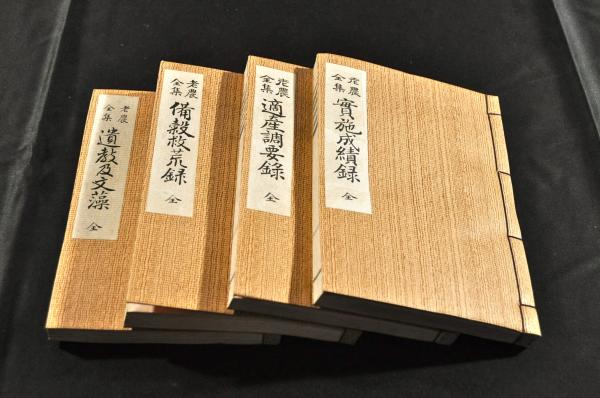 老農
全集
實施成績録
全
老農
全集
適產調要録
全
老農
全集
備穀救荒録
全
老農
全集
遺教及文藻
全